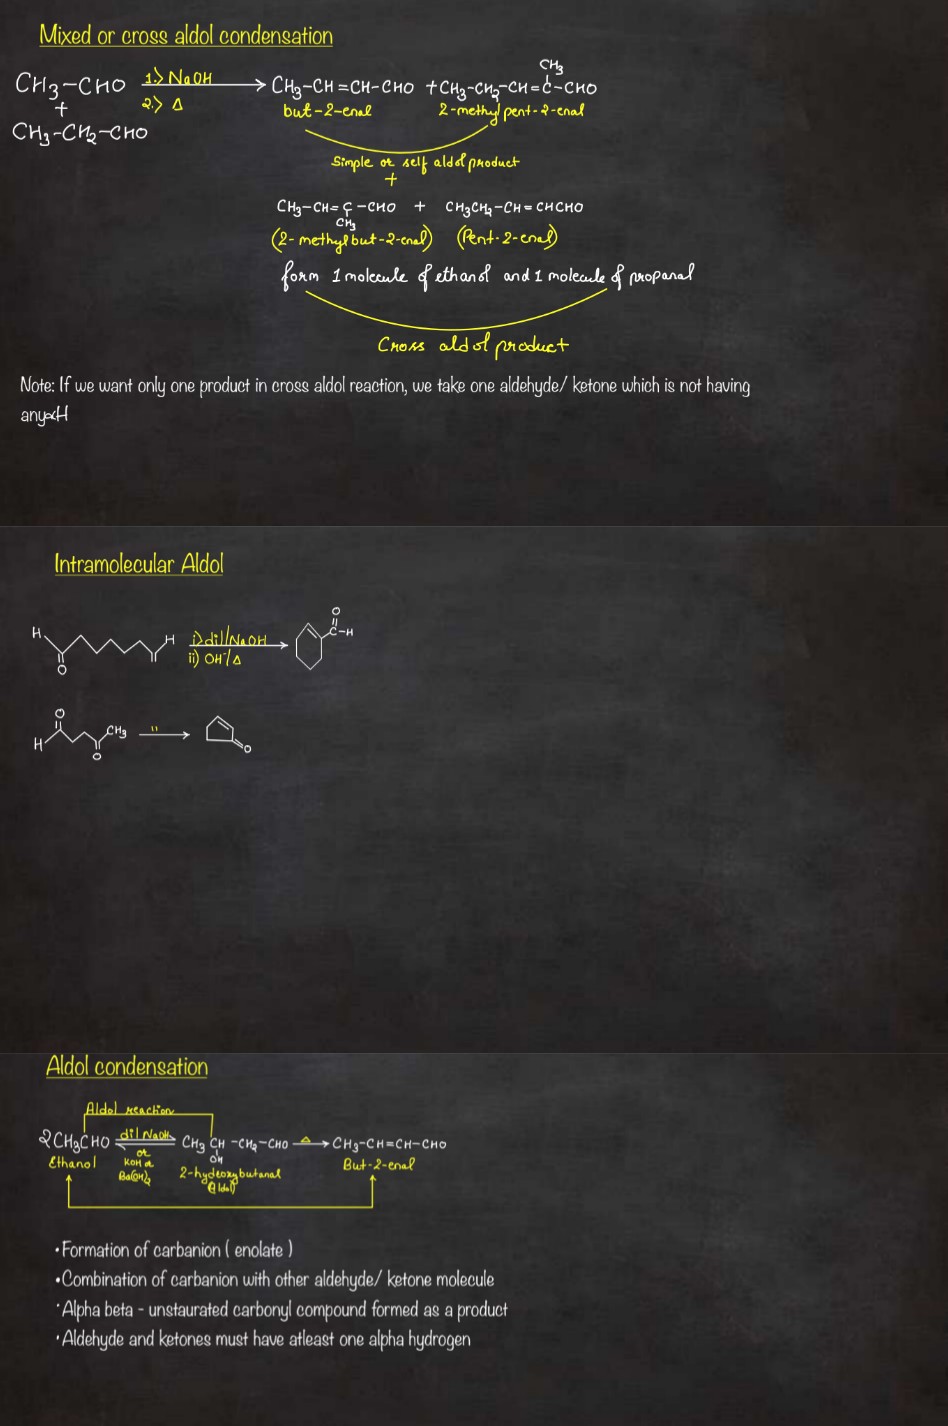 Mixed or cross aldol condensation
CH3-CHO 1.> NaOH CH3-CH=CH-CHO + CH3-CH2-CH=C-CHO
CH3
+ 2.> Δ but-2-enal 2-methyl pent-2-enal
CH3-CH2-CHO
Simple or self aldol product
+
CH3-CH=C-CHO + CH3CH2-CH=CHCHO
CH3
(2-methyl but-2-enal) (Pent-2-enal)
form 1 molecule of ethanol and 1 molecule of propanal
Cross aldol product
Note: If we want only one product in cross aldol reaction, we take one aldehyde/ ketone which is not having
any αH
Intramolecular Aldol
O
H H i) dil/NaOH C-H
O ii) OH-/Δ
O
H CH3 "
O O
Aldol condensation
Aldol reaction
2CH3CHO dil NaOH CH3 CH-CH2-CHO Δ CH3-CH=CH-CHO
Ethanol or OH But-2-enal
KOH or 2-hydeoxybutanal
Ba(OH)2 (Aldol)
•Formation of carbanion ( enolate )
•Combination of carbanion with other aldehyde/ ketone molecule
•Alpha beta - unstaurated carbonyl compound formed as a product
•Aldehyde and ketones must have atleast one alpha hydrogen